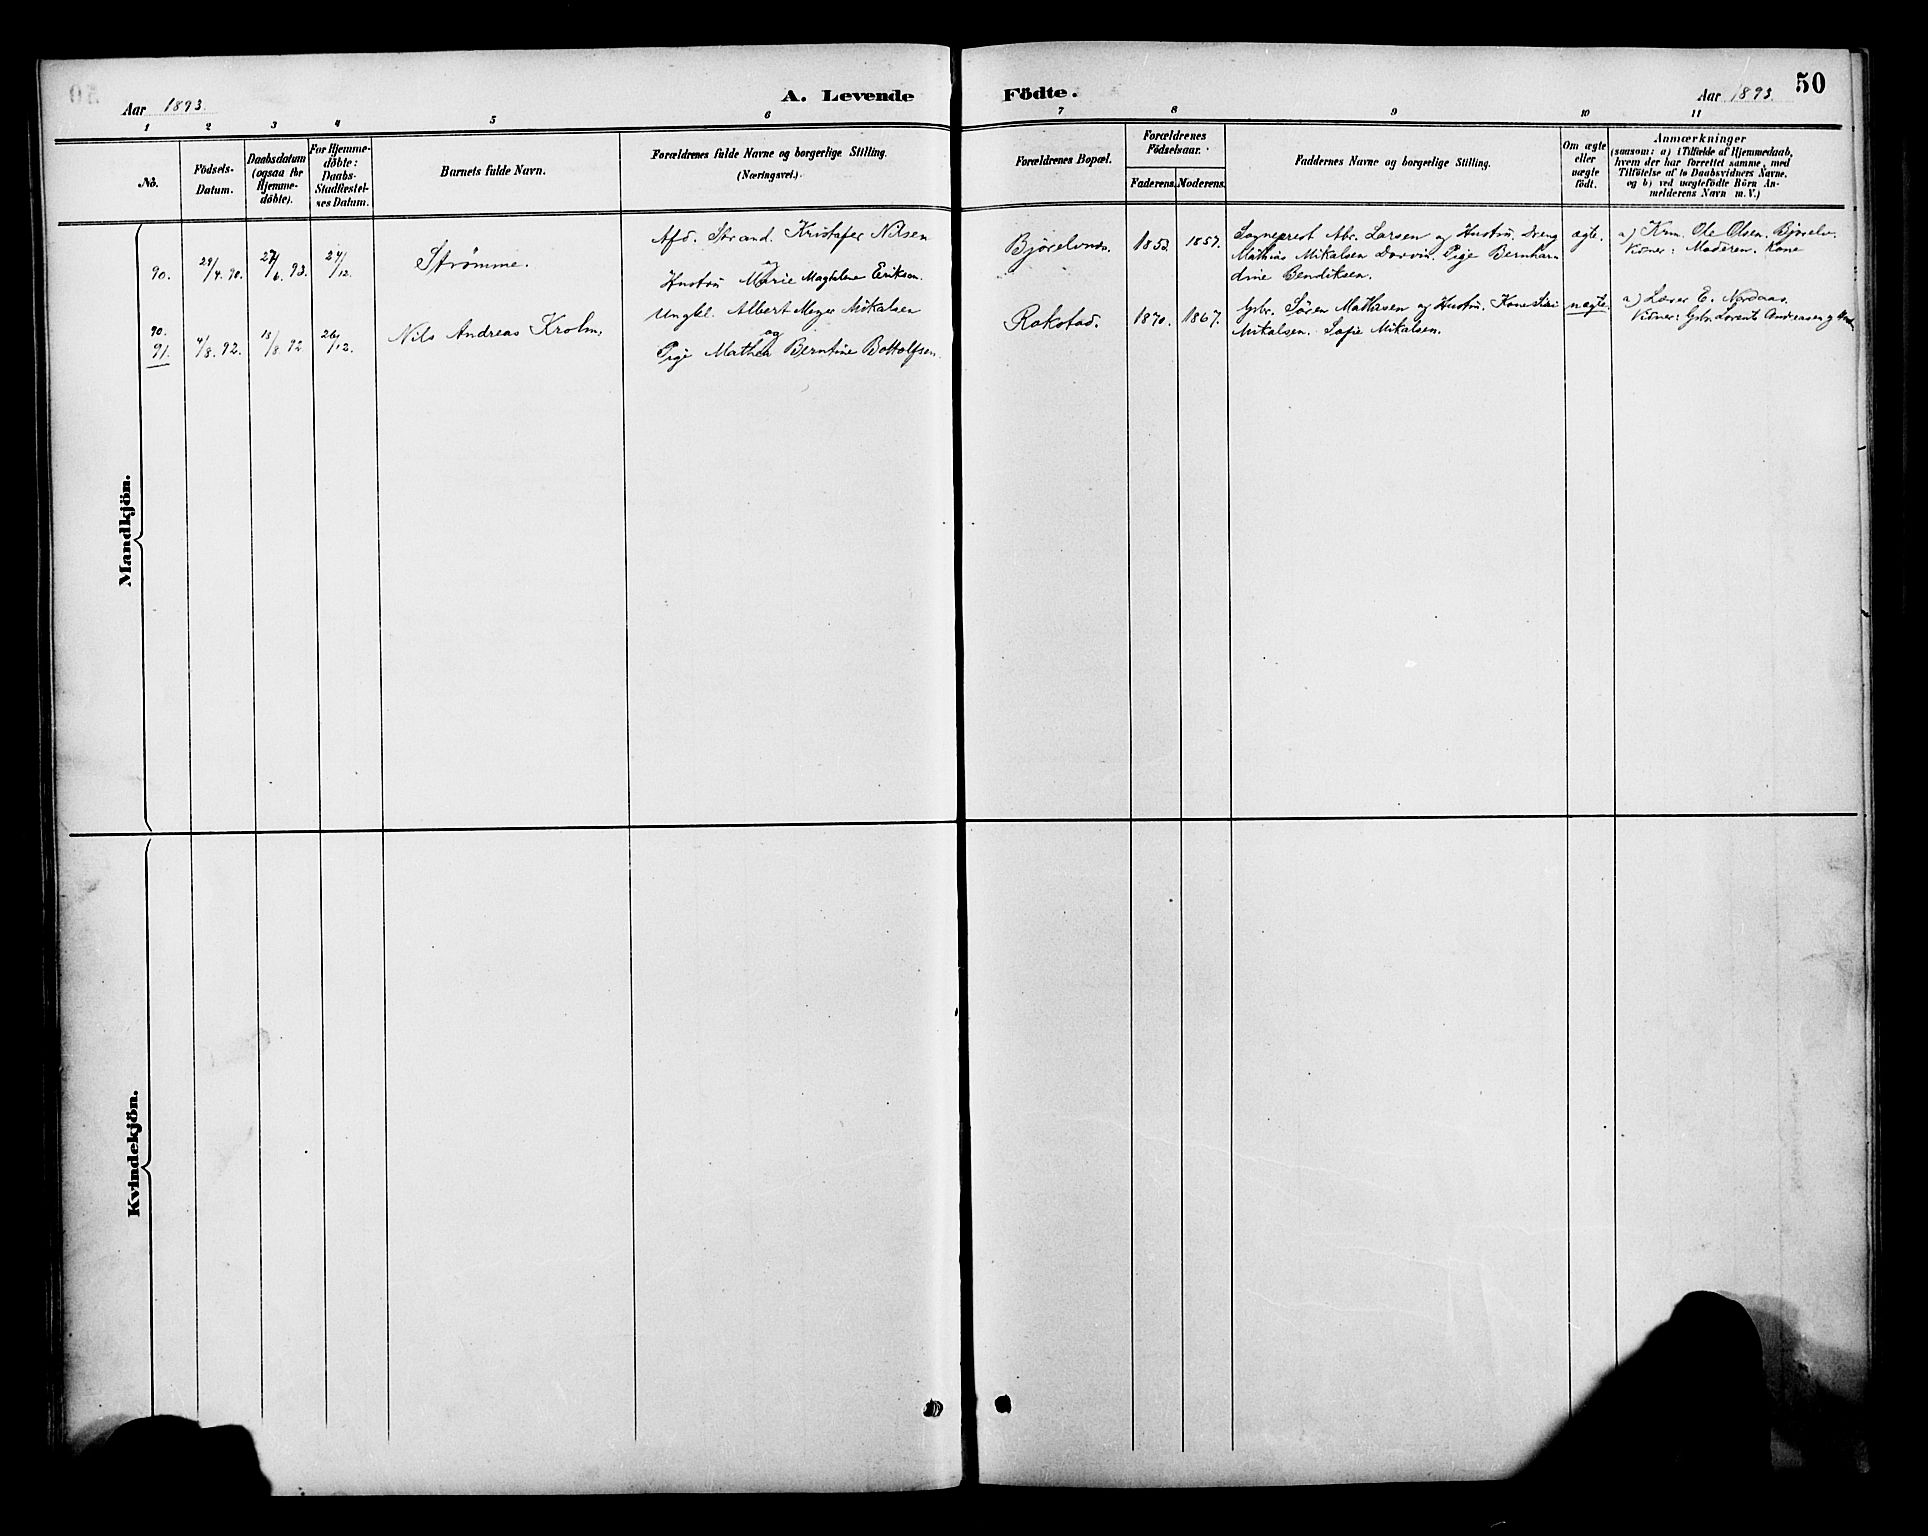 50
Aar 1893.
A. Levende Födte.
Aar 1893.
1 2 3 4 5 6 7 8 9 10 11
No.
Födsels-
Datum.
Daabsdatum
(ogsaa for
Hjemme-
døbte).
For Hjemme-
døbte:
Daabs-
Stadfestel-
ses Datum.
Barnets fulde Navn.
Forældrenes fulde Navne og borgerlige Stilling.
(Næringsvei.)
Forældrenes Bopæl.
Forældrenes
Födselsaar.
Faderens. Moderens.
Faddernes Navne og borgerlige Stilling.
Om ægte
eller
uægte
født.
Anmærkninger
(saasom: a) i Tilfælde af Hjemmedaab,
hvem der har forrettet samme, med
Tilföielse af to Daabsvidners Navne,
og b) ved uægtefödte Börn An-
melderens Navn m. V.)
Mandkjön.
90.
29/4. 90.
27/6. 93.
24/12.
Strømme.
Afd. Strand. Kristofer Nilsen
og
Hustru Marie Magdalene Eriksen.
Bjørelvnes.
1852. 1857.
Sogneprest Abr. Larsen og Hustru. Dreng
Mathias Mikalsen Dorvin. Pige Bernhar
dine Bendiksen.
ægte.
a) Km. Ole Olsen. Bjørelv.
Vidner: Moderen. Kone
90.
91.
4/8. 92.
18/8 92
26/12.
Nils Andreas Krohn.
Ungkl. Albert Meyer Mikalsen
og
Pige Mathea Berntine Bottolfsen.
Rokstad.
1870. 1867.
Gbr. Sören Mathisen og Hustru. Kone
Mikalsen. Sofie Mikalsen.
uægte
a) Lærer E. Nordaas.
Vidner: Gbr. Lorents Andreasen og
Kvindekjön.